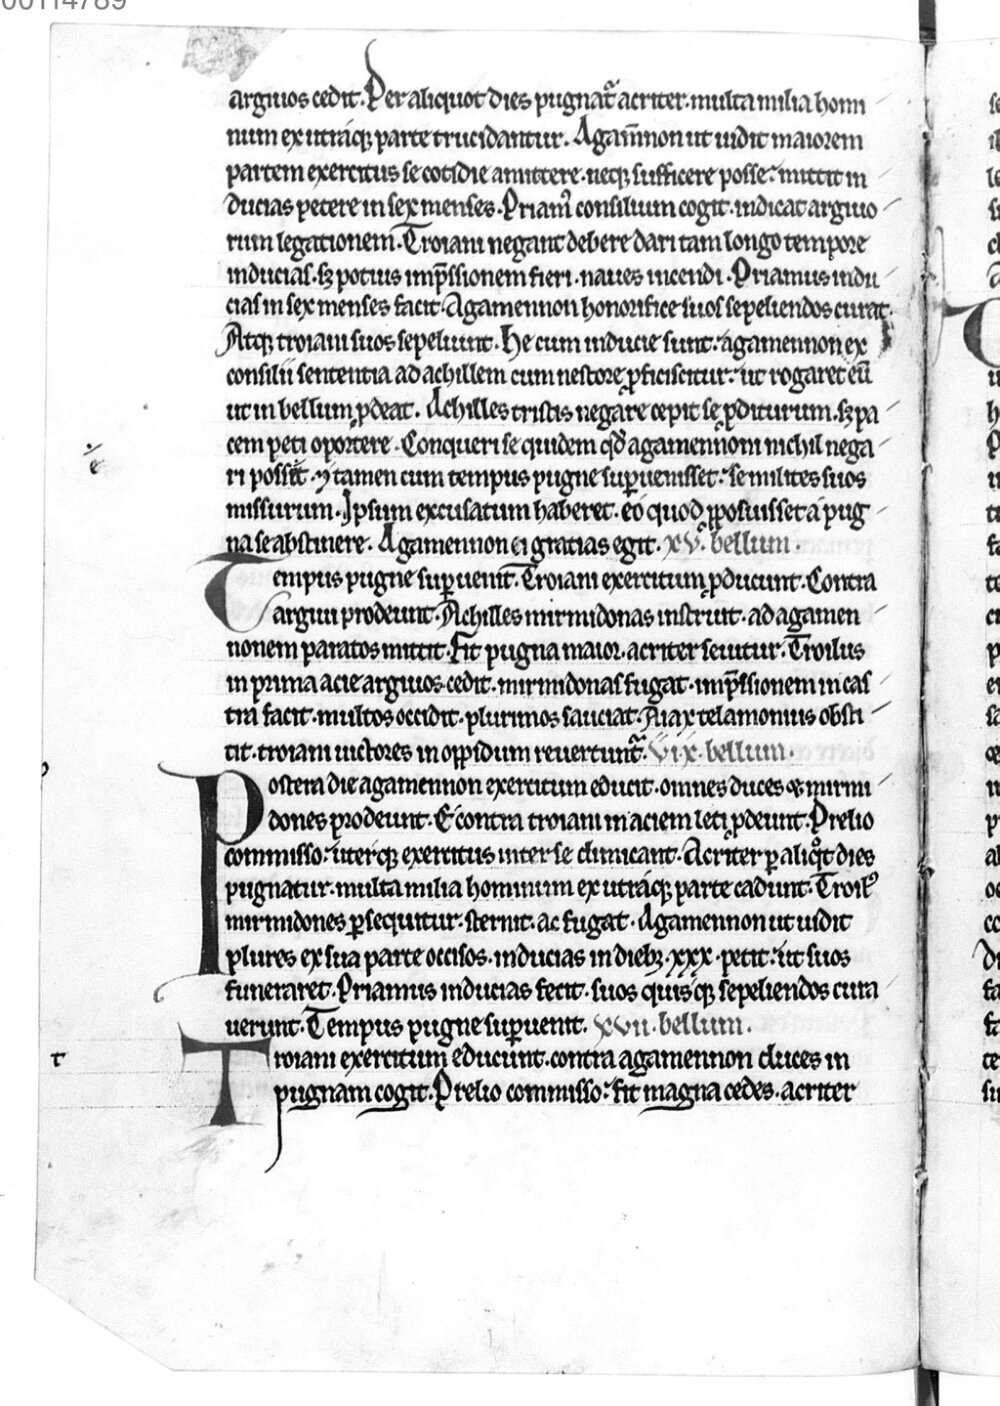 00114789
argiuos cedit. Per aliquot dies pugnat̃ acriter. multa milia homi
num ex utraq; parte trucidantur. Agam̃non ut uidit maiorem
partem exercitus se cotidie amittere. neq; sufficere posse: mittit in
ducias petere in sex menses. Priam᷒ consilium cogit. indicat argiuo
rum legationem. Troiani negant debere dari tam longo tempore
inducias. sꝫ potius imp̃ssionem fieri. naues incendi. Priamus indu
cias in sex menses facit. Agamennon honorifice suos sepeliendos curat.
Atq; troiani suos sepeliunt. He cum inducie sunt: agamennon ex
consilii sententia ad achillem cum nestore ꝓficiscitur: ut rogaret eũ
ut in bellum ꝓdeat. Achilles tristis negare cepit se ꝓditurum. sꝫ pa
cem peti oportere. Conqueri se quidem qđ agamennoni nichil nega
ri possit. ⁊ tamen cum tempus pugne sup̱uenisset: se milites suos
missurum. Ipsum excusatum haberet. eo quod ꝓposuisset a pug
na se abstinere. Agamennon ei gratias egit. xv. bellum.
Tempus pugne sup̱uenit. Troiani exercitum ꝓducunt. Contra
argiui prodeunt. Achilles mirmidonas instruit. ad agamen
nonem paratos mittit. Fit pugna maior. acriter seuitur. Troilus
in prima acie argiuos cedit. mirmidonas fugat. imp̃ssionem in cas
tra facit. multos occidit. plurimos sauciat. Aiax telamonius obsti
tit. troiani uictores in oppidum reuertunt̃. vix. bellum.
Postera die agamennon exercitum educit. omnes duces & mirmi
dones prodeunt. E contra troiani in aciem leti ꝓdeunt. Prelio
commisso: uterq; exercitus inter se dimicant. Acriter ꝑ aliqͦt dies
pugnatur. multa milia hominum ex utraq; parte cadunt. Troil᷒
mirmidones ꝑsequitur. sternit. ac fugat. Agamennon ut uidit
plures ex sua parte occisos. inducias in diebꝫ. xxx. petit: ut suos
funeraret. Priamus inducias fecit. suos quisq; sepeliendos cura
uerunt. Tempus pugne sup̱uenit. xvii. bellum.
Troiani exercitum educunt. contra agamennon duces in
pugnam cogit. Prelio commisso: fit magna cedes. acriter
t